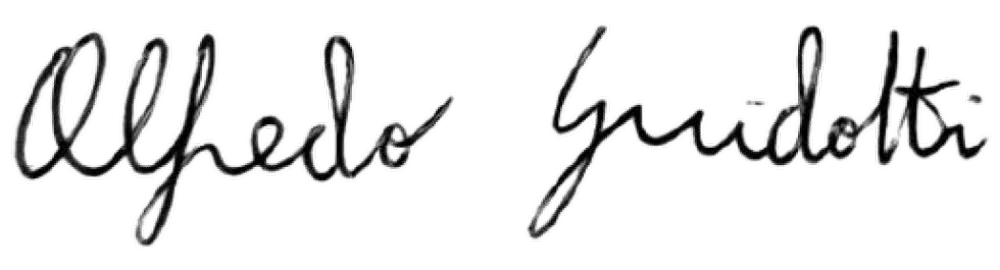 Alfredo Guidotti